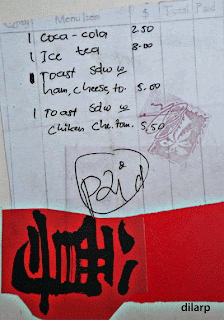 Menu Item $ Total Paid
1 Coca-cola 2.50
1 Ice tea 3.00
1 Toast sdw w
ham, cheese, to. 5.00
1 Toast sdw w
chiken che. tom. 5,50
Paid
dilarp